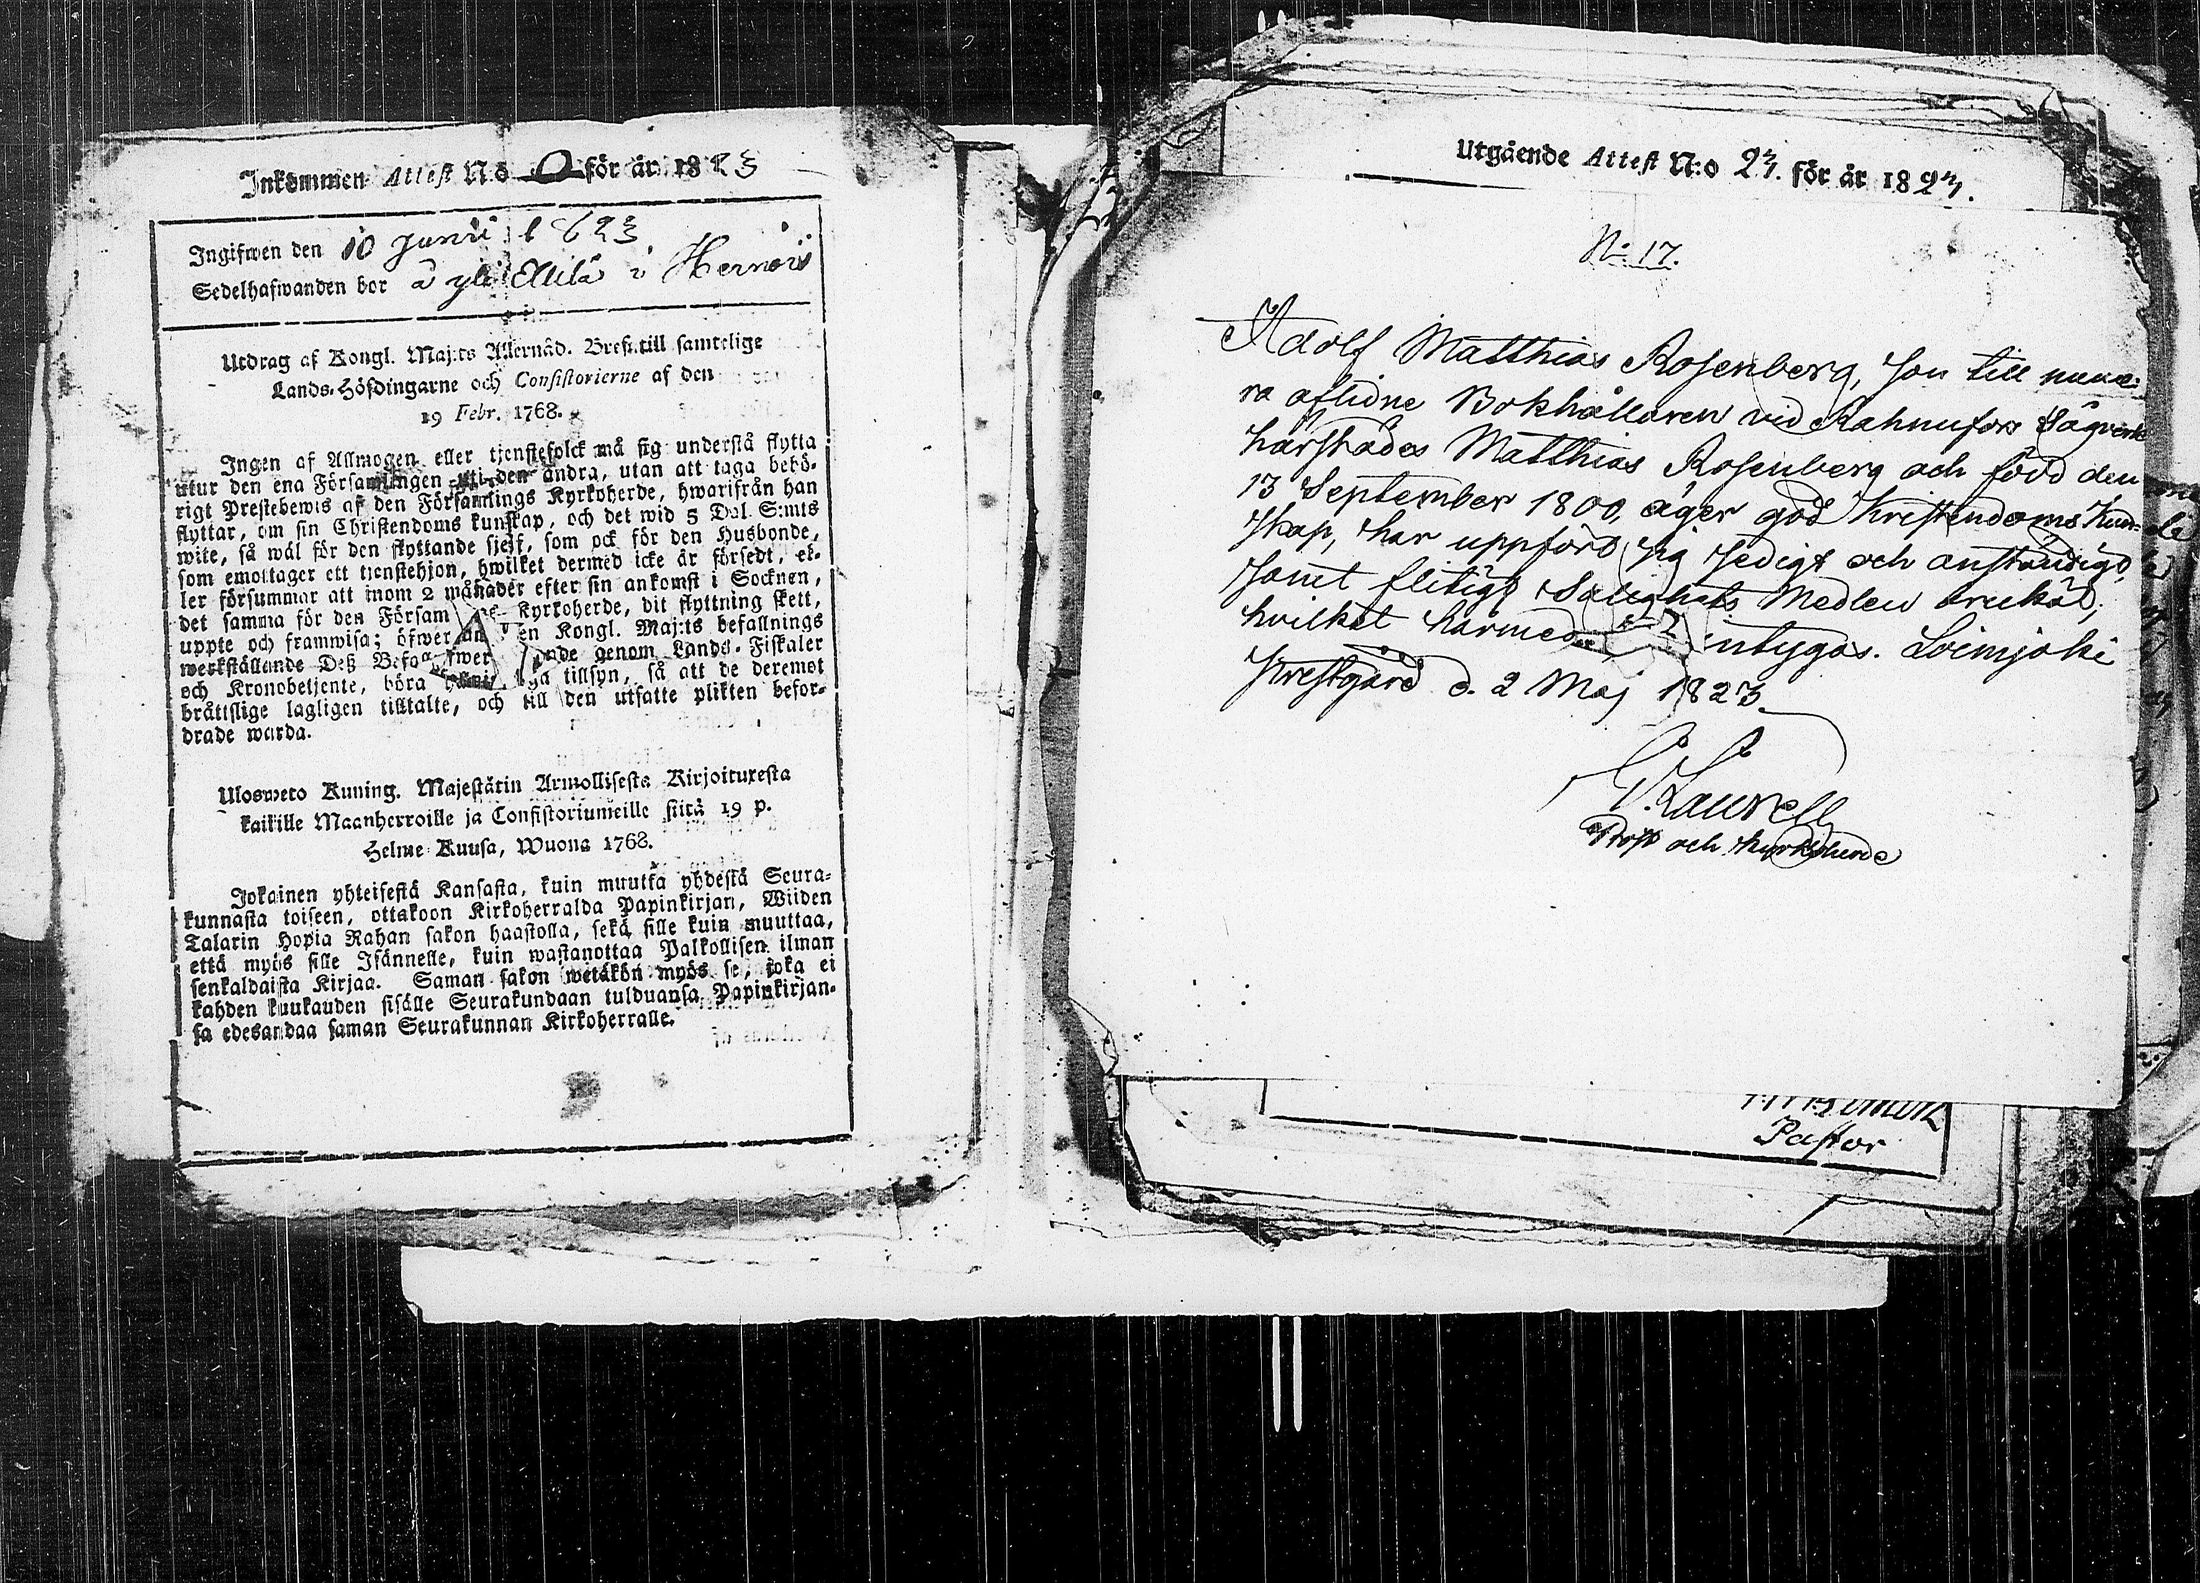 Inkommen Attest N:o 0 för år 1823
Ingifwen den 10 Junii 1823
Sedelhafwanden bor å yli i
Utdrag af Kongl. Maj:ts Allernåd. Bref till samtelige
Lands-Höfdingarne och Consistorierne af den
19 Febr. 1768.
Ingen af Allmogen eller tjenstefolck må sig understå flytta
utur den ena Församlingen uti den andra, utan att taga behö-
rigt Prestebewis af den Församlings Kyrkoherde, hwarifrån han
flyttar, om sin Christendoms kunskap, och det wid 5 Dal. S:mts
wite, så wäl för den flyttande sjelf, som ock för den Husbonde,
som emottager ett tjenstehjon, hwilket dermed icke är försedt, el-
ler försummar att inom 2 månader efter sin ankomst i Socknen,
det samma för den Försam Kyrkoherde, dit flyttning skett,
uppte och framwisa; öfwer en Kongl. Maj:ts befallnings
werkställande Deß genom Lands-Fiskaler
och Kronobetjente, böra tillsyn, så att de deremot
bråttslige lagligen tilltalte, och till den utsatte plikten befor-
drade warda.
Ulosweto Kuning. Majestätin Armollisesta Kirjoituxesta
kaikille Maanherroille ja Consistoriumeille siitä 19 p.
Helme Kuusa, Wuona 1768.
Jokainen yhteisestä Kansasta, kuin muutta yhdestä Seura-
kunnasta toiseen, ottakoon Kirkoherralda Papinkirjan, Wiiden
Talarin Hopia Rahan sakon haastolla, sekä sille kuin muuttaa,
että myös sille Isännelle, kuin wastanottaa Palkollisen ilman
senkaldaista Kirjaa. Saman sakon wetäkön myös se, joka ei
kahden kuukauden sisälle Seurakundaan tulduansa Papinkirjan-
sa edesandaa saman Seurakunnan Kirkoherralle.
Utgående Attest N:o 23. för år 1823.
N:o 17.
Adolf Matthias Rosenberg, son till numе-
ra aflidne Bokhållaren vid Sågverk
härstädes Matthias Rosenberg och född den
13 September 1800, äger god Kristendoms kun-
skap, har uppfört sig sedigt och anständigt,
samt flitigt Salighets Medlen brukat;
hvilket härmed intygas. Loimjoki
Prestgård d. 2 Maj 1823.
Laurell
Prost och Kyrkoherde
Pastor